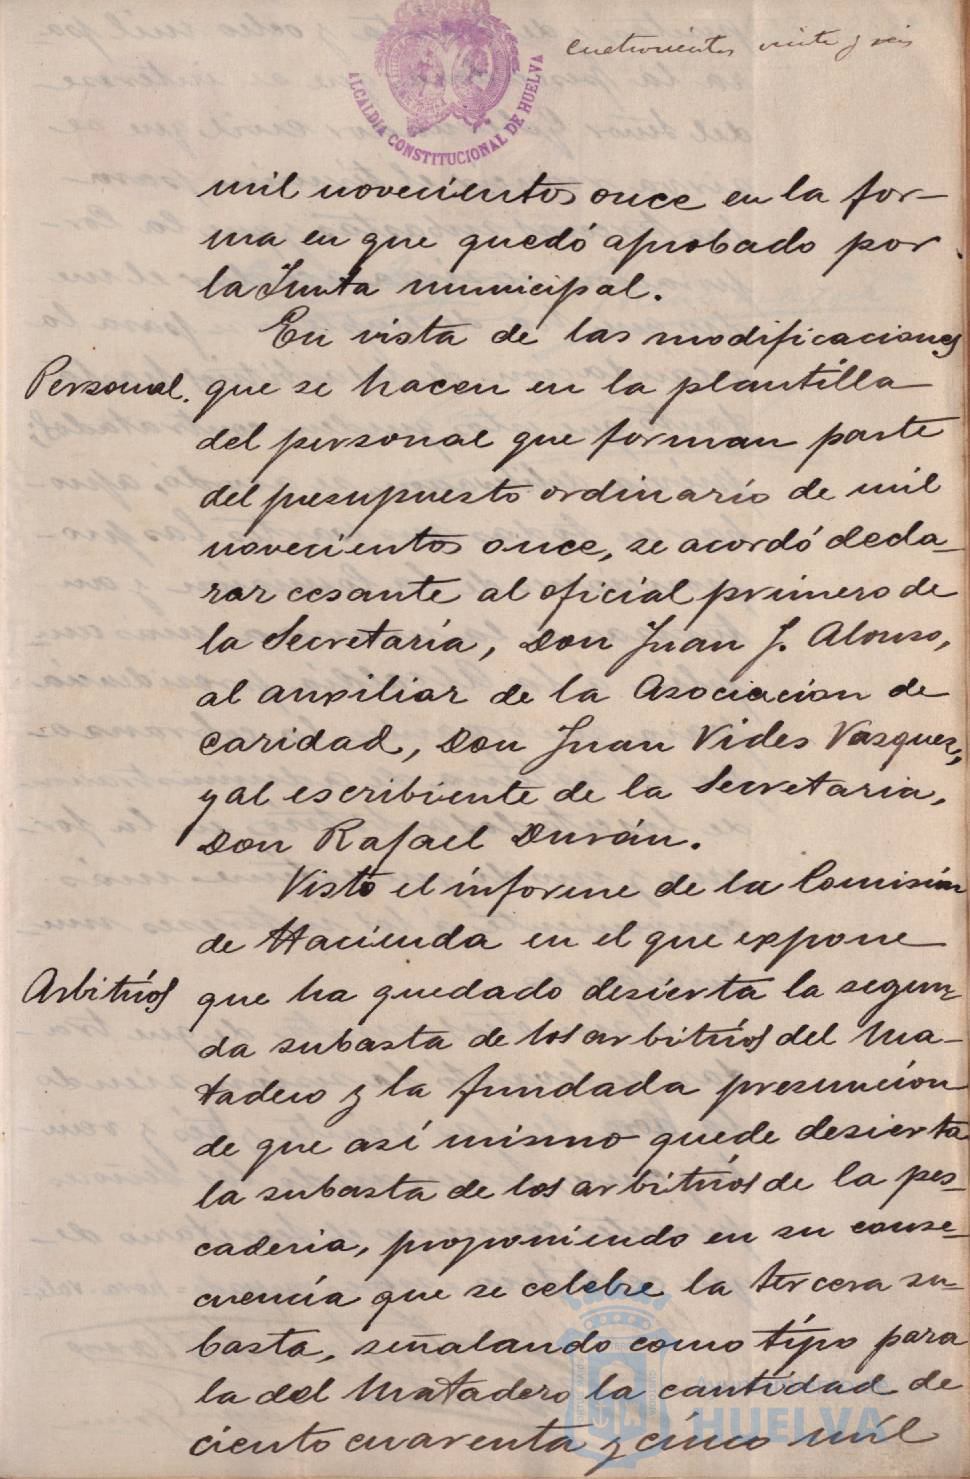 cuatrocientos veinte y seis
ALCALDIA CONSTITUCIONAL DE HUELVA
mil novecientos once en la for-
ma en que quedó aprobado por
la Junta municipal.
En vista de las modificaciones
Personal. que se hacen en la plantilla
del personal que forman parte
del presupuesto ordinario de mil
novecientos once, se acordó decla-
rar cesante al oficial primero de
la Secretaría, Don Juan J. Alonso,
al auxiliar de la Asociacion de
Caridad, Don Juan Vides Vazquez,
y al escribiente de la Secretaria,
Don Rafael Durán.
Visto el informe de la Comisión
de Hacienda en el que expone
Arbitrios que ha quedado desierta la segun-
da subasta de los arbitrios del Ma-
tadero y la fundada presuncion
de que así mismo quede desierta
la subasta de los arbitrios de la pes-
caderia, proponiendo en su conse-
cuencia que se celebre la tercera su-
basta, señalando como tipo para
la del Matadero la cantidad de
ciento cuarenta y cinco mil
Ayuntamiento de
HUELVA